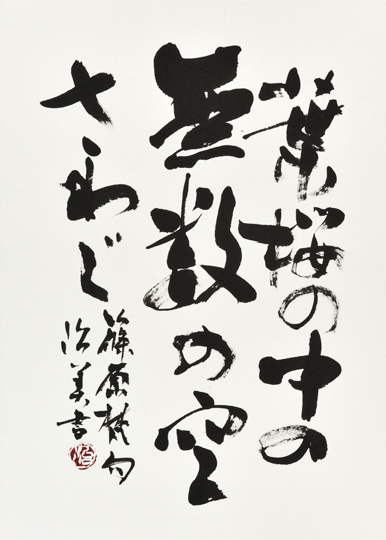 葉桜の中の
無数の空
さわぐ
篠原梵句
治美書